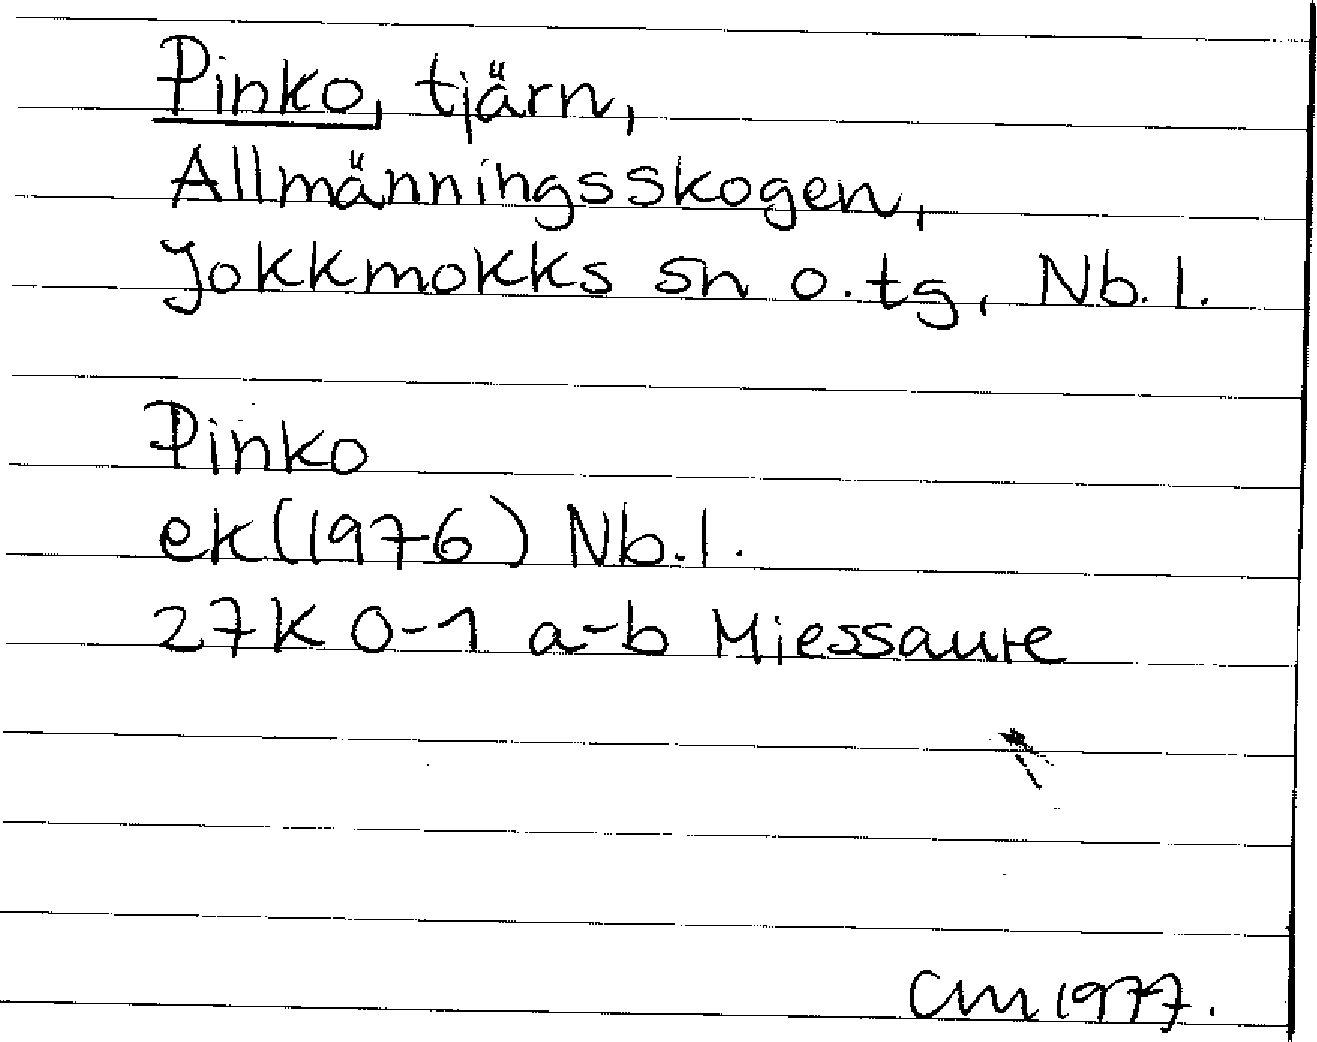 Pinko, tjärn,
Allmänningsskogen,
Jokkmokks sn o. tg, Nb. l.
Pinko
ek(1976) Nb. l.
27K 0-1 a-b Miessaure
CM 1977.